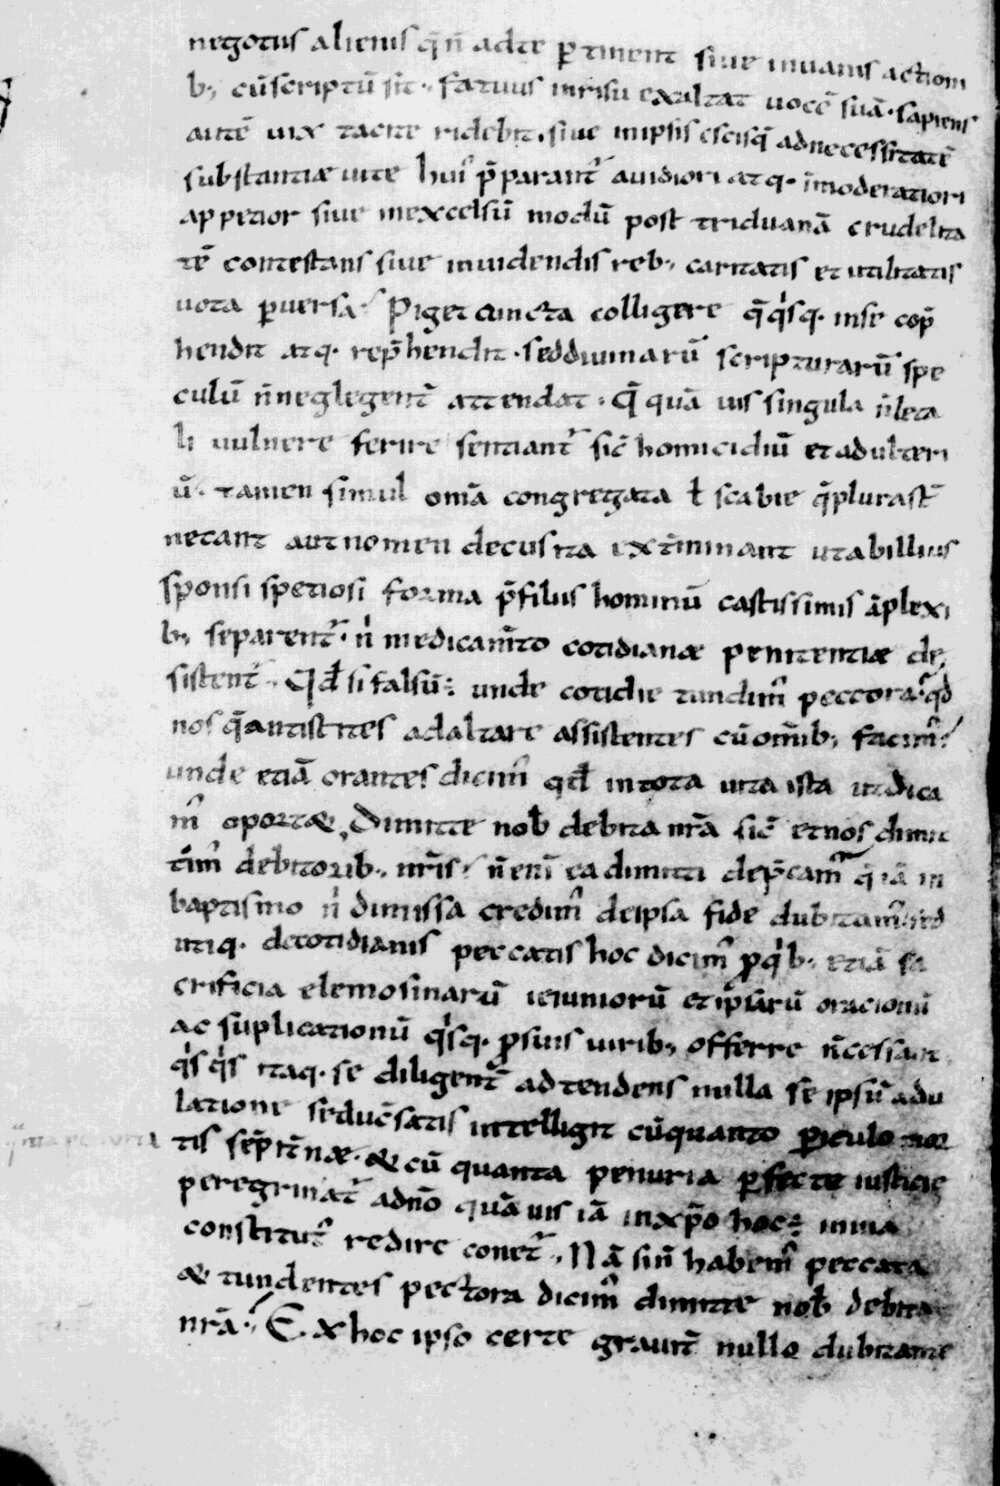 negotiis alienis q̄ n̄ adte ꝑtinent siue inuanis actioni
b; cū scriptū sit · fatuus inrisu exaltat uocē suā · sapiens
autē uix tacite ridebit · siue inipsis escisq̄ adnecessitatē
substantiæ uite hui' p̄parant᷑ auidiori atq· īmoderatiori
appetior siue inexcelsū modū post triduanā crudelita
tē contestans siue inuidendis reb; caritatis et utilitatis
uota ꝑuersa · Piget cuncta colligere q̄ q'sq· inse cōp̄
hendit atq· rep̄hendit · sed diuinarū scripturarū spe
culū n̄ neglegent᷑ attendat · Q̄ quā uis singula n̄ leta
li uulnere ferire sentiant᷑ sic̄ homicidiū et adulteri
ū · tamen simul om̄a congregata ł scabie q̄ plura st̄
necant aut nomen decus ita ext̄minant ut abillius
sponsi spetiosi forma p̄ filiis hominū castissimis āplexi
b; separent᷑ · n' medicam̄to cotidianæ penitentiæ de
sistent᷑ · Qđ si falsū : unde cotidie tundim' peccora · qđ
nos q̄ antistites adaltare assistentes cū om̄ib; facim'
unde etiā orantes dicim' qđ intota uita ista ut dica
m' oportæ, Dimitte nob̄ debita nr̄a sic̄ et nos dimit
tim' debitorib; nr̄is · n̄ eni ea dimitti dep̄cam' q' iā in
baptismo n' dimissa credim' deipsa fide dubitam' · sed
utiq· decotidianis peccatis hoc dicim' ꝓ q'b; etiā sa
crificia elemosinarū ieiuniorū et ipsarū oracionū
ac sūplicationū q'sq· ꝓ suis uirib; offerre n̄ cessant
q's q's itaq· se diligent᷑ adtendens nulla se ipsū adu
latione seduc̄ satis intelligit cū quanto ꝑiculo mor
tis sēpit̄næ · & cū quanta penuria ꝑfecte iusticie
peregrinat᷑ adn̄o quā uis iā inxp̄o hoc : inuia
constitut' redire conet᷑ · Nā si n̄ habem' peccata
& tundentes pectora dicim' dimitte nob̄ debita
nr̄a · Ex hoc ipso certe grauit̄ nullo dubitante